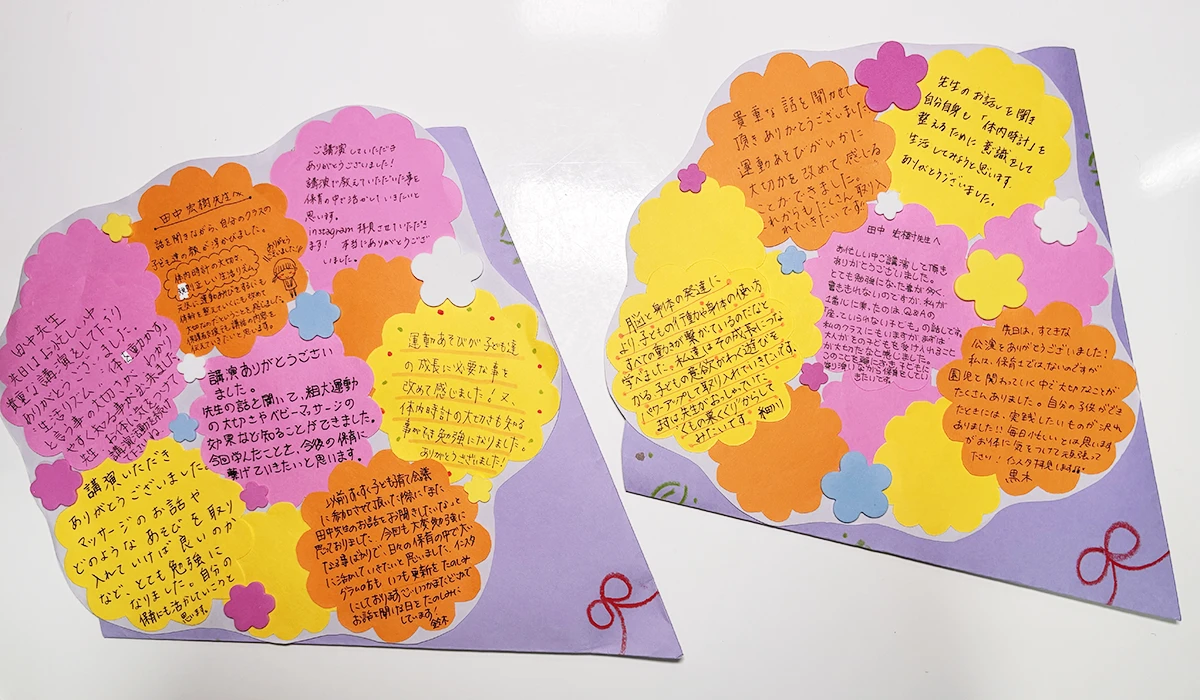 ご講演していただき
ありがとうございました!
講演で教えていただいた事を
保育の中で活かしていきたいと
思います。
instagram 拝見させていただき
ます! 本当にありがとうござ
いました。
田中宏樹先生へ
話を聞きながら、自分のクラスの
子ども達の顔が浮かびました。
体内時計の大切さ、
正しい生活リズム、
ありがとう
ございました
田中先生
先日はお忙しい中
貴重な講演をしてくださり
ありがとうございました。
生活リズム、体を動かす
と言う事の大切さが
講演ありがとうござい
ました。
先生の話を聞いて、粗大運動
の大切さやベビーマッサージの
効果など知ることができました。
今回学んだことを、今後の保育に
繋げていきたいと思います。
運動あそびが子ども達
の成長に必要な事を
改めて感じました!又、
体内時計の大切さも知る
事ができ勉強になりました。
ありがとうございました!
講演いただき
ありがとうございました。
マッサージのお話や
どのようなあそびを取り
入れていけば良いのか
など、とても勉強に
なりました。自分の
保育にも活かしていこうと
思います。
以前すくすく子ども育て会議
に参加させて頂いた際に「また
田中先生のお話をお聞きしたいな」と
思っておりました。今回も大変勉強に
なる事ばかりで、日々の保育の中で大い
に活かしていきたいと思いました。インスタ
グラムの方も いつも更新をたのしみ
にしております♡いつかまたどこかで
お話を聞ける日をたのしみに
しています! 鈴木
貴重な話を聞かせて
頂きありがとうございました!
運動あそびがいかに
大切かを改めて感じる
ことができました。
これからもたくさん取り入
れていきたいです
先生のお話しを聞き
自分自身も「体内時計」を
整えるために意識をして
生活してみようと思います。
ありがとうございました。
田中 宏樹先生へ
お忙しい中ご講演して頂き
ありがとうございました。
とても勉強になった事が多く
書ききれないのですが、私が
1番心に乗ったのは Q&Aの
座っていられない子どもの話しです。
私のクラスにもいますが、まずは
大人がその子どもを受け入れること
が大切だなと感じました。
このことを胸に、これからも子どもに
寄り添いながら保育をしていき
たいです。
脳と身体の発達に
より子どもの行動や身体の使い方
すべての動きが繋がっているのだなと
学べました。私達はその成長につな
がる子どもの意欲がわく遊びを
パワーアップして取り入れていきたいです。
まずは先生がおっしゃっていた
みたいです
先日は、すてきな
公演をありがとうございました!
私は、保育士ではないのですが
園児と関わっていく中で大切なことが
たくさんありました。自分の子供ができ
たときには、実践したいものが沢山
ありました!!毎日忙しいとは思います
がお体に気をつけて元気張って
ださい! インスタ拝見します
黒木